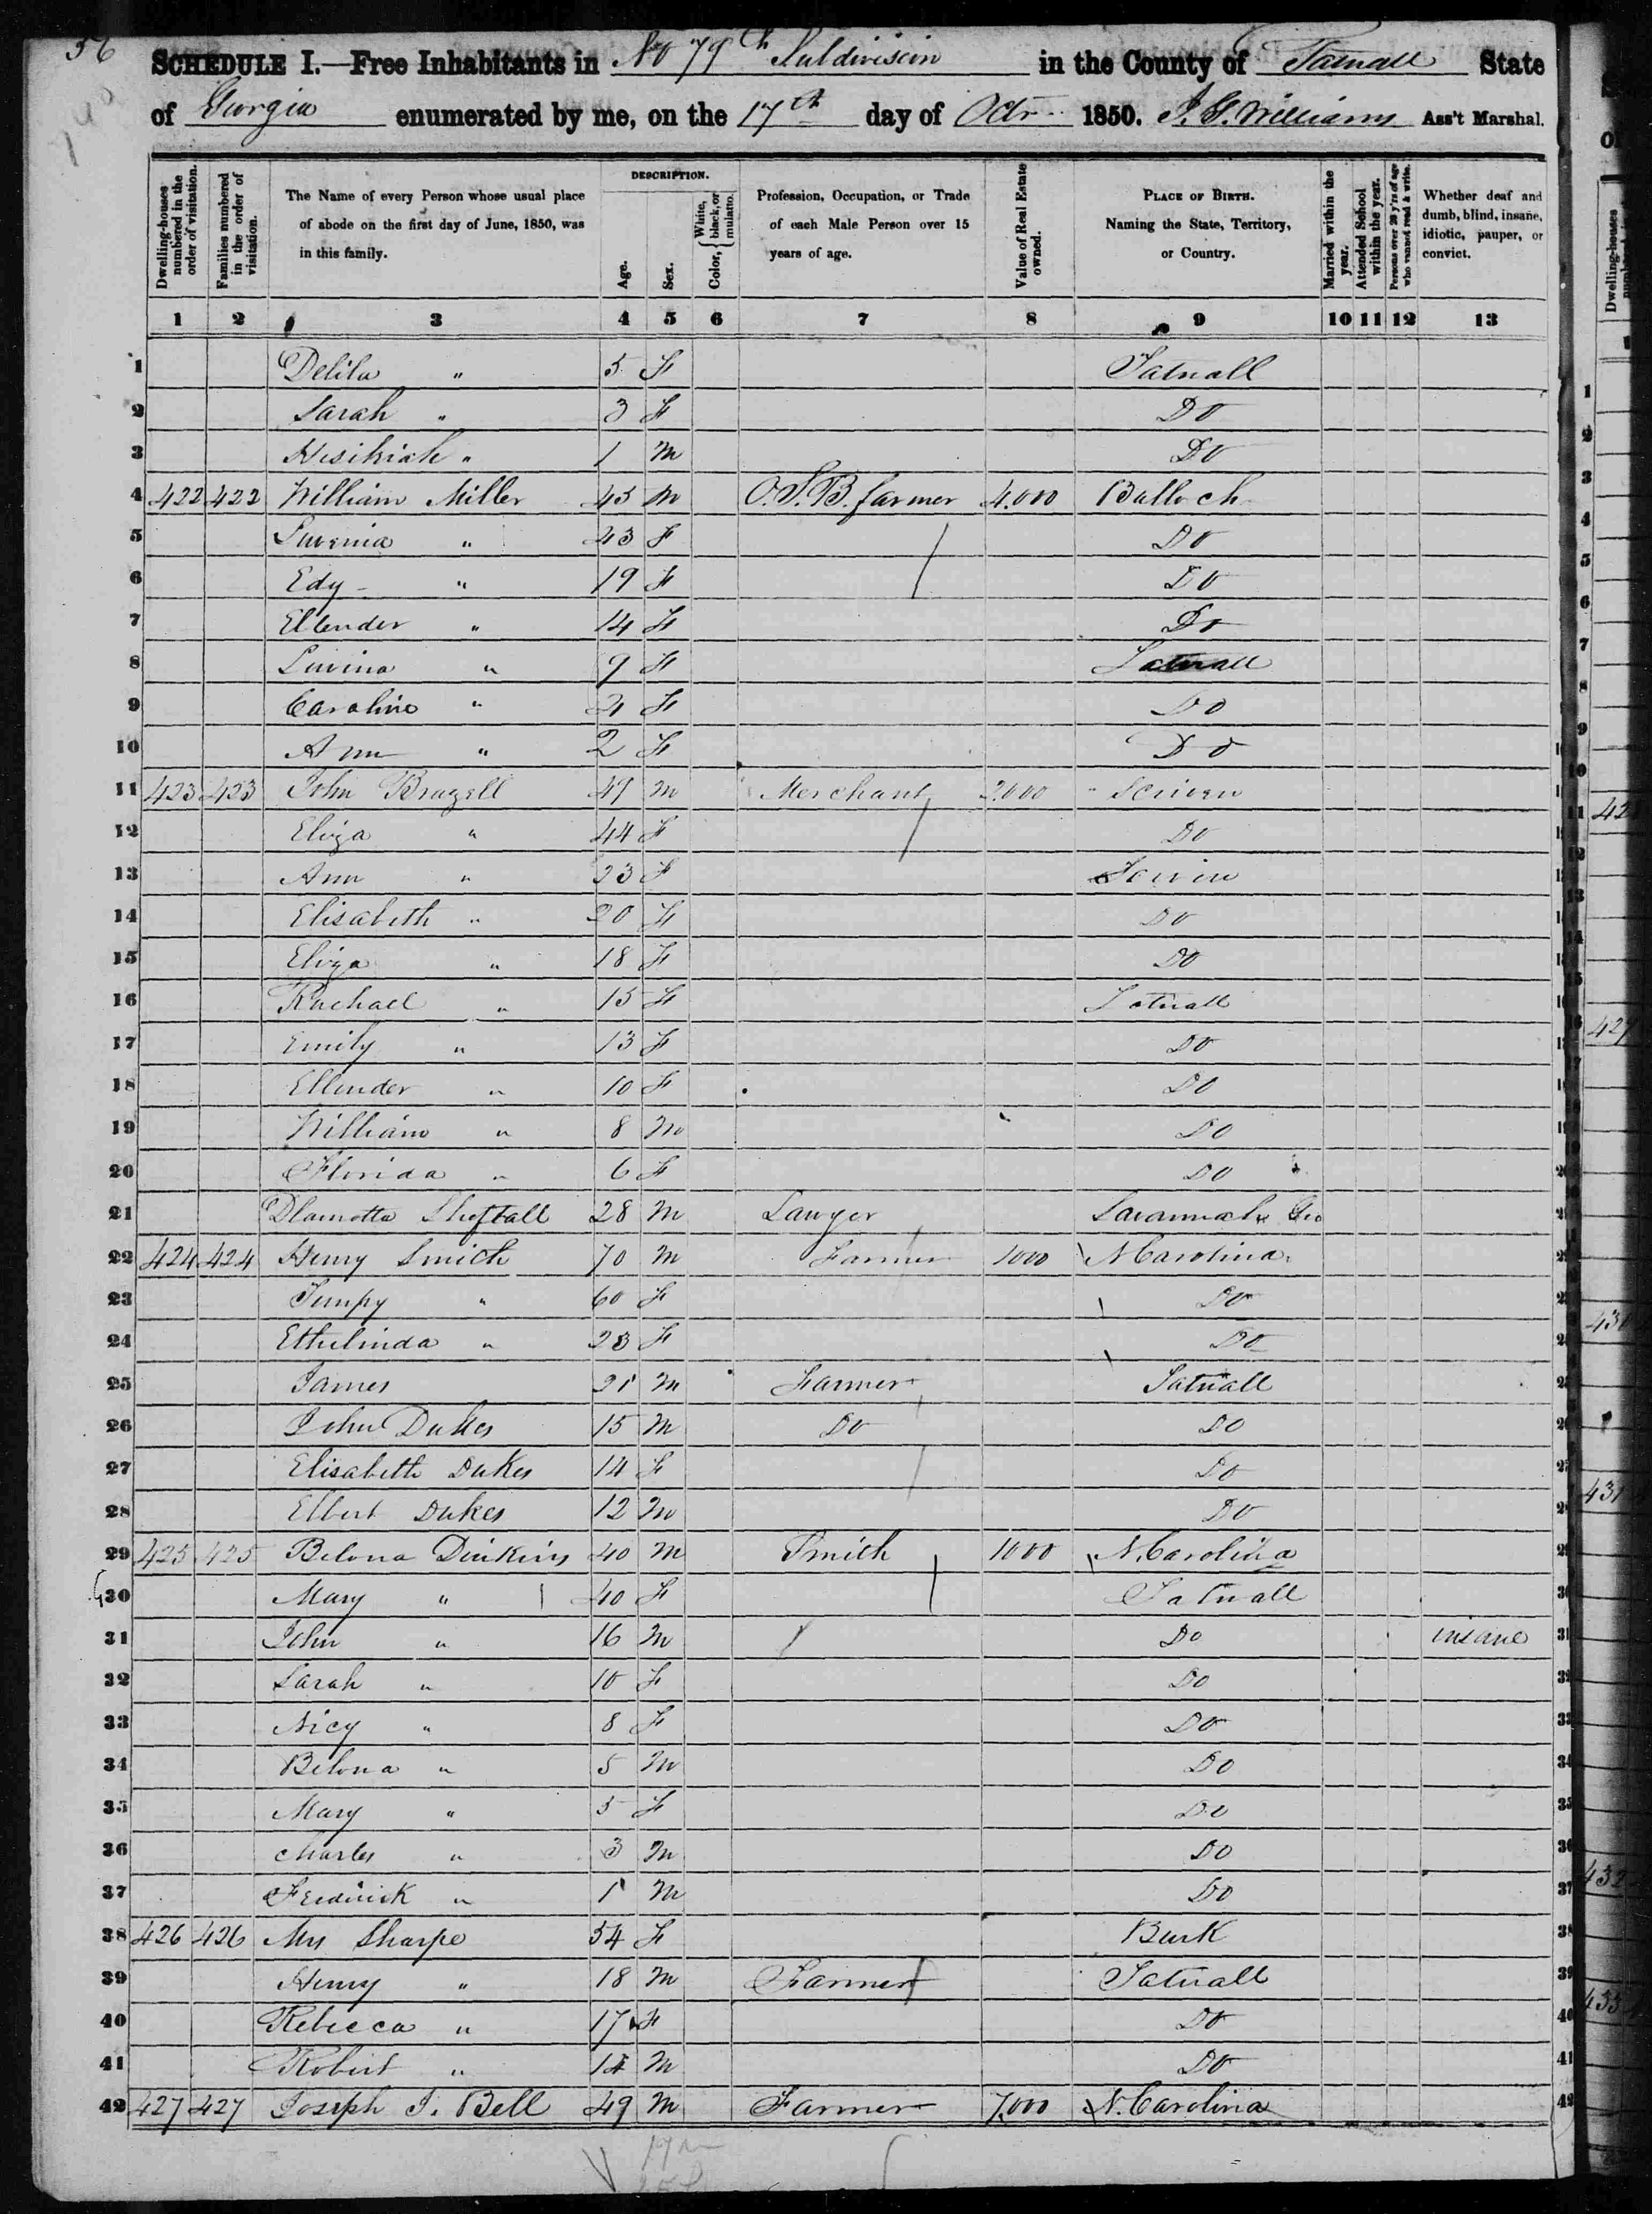 56
SCHEDULE I.—Free Inhabitants in No 79th Subdivision in the County of Tatnall State
of Georgia enumerated by me, on the 17th day of Octr 1850. J. G. Williams Ass't Marshal.
Dwelling-houses numbered in the order of visitation.
Families numbered in the order of visitation.
The Name of every Person whose usual place of abode on the first day of June, 1850, was in this family.
DESCRIPTION.
Age.
Sex.
Color, { White, black, or mulatto.
Profession, Occupation, or Trade of each Male Person over 15 years of age.
Value of Real Estate owned.
PLACE OF BIRTH. Naming the State, Territory, or Country.
Married within the year.
Attended School within the year.
Persons over 20 y'rs of age who cannot read & write.
Whether deaf and dumb, blind, insane, idiotic, pauper, or convict.
1 2 3 4 5 6 7 8 9 10 11 12 13
1 Delila " 5 F Tatnall
2 Sarah " 3 F Do
3 Hesikiah " 1 M Do
4 422 422 William Miller 45 M O.S.B. farmer 4,000 Bulloch
5 Luvenia " 43 F Do
6 Edy " 19 F Do
7 Ellender " 14 F Do
8 Luvina " 9 F Tatnall
9 Caroline " 4 F Do
10 Ann " 2 F Do
11 423 423 John Brazell 49 M Merchant 2,000 Scriven
12 Eliza " 44 F Do
13 Ann " 23 F Scriven
14 Elisabeth " 20 F Do
15 Eliza " 18 F Do
16 Rachael " 15 F Tatnall
17 Emily " 13 F Do
18 Ellender " 10 F Do
19 William " 8 M Do
20 Florida " 6 F Do
21 Dlamotta Sheftall 28 M Lawyer Savannah Geo
22 424 424 Henry Smith 70 M Farmer 1000 N Carolina
23 Tempy " 60 F Do
24 Ethelinda " 23 F Do
25 James 21 M Farmer Tatnall
26 John Dukes 15 M Do Do
27 Elisabeth Dukes 14 F Do
28 Elbert Dukes 12 M Do
29 425 425 Belona Dinkins 40 M Smith 1000 N. Carolina
30 Mary " 40 F Tatnall
31 John " 16 M Do insane
32 Sarah " 10 F Do
33 Nicy " 8 F Do
34 Belona " 5 M Do
35 Mary " 5 F Do
36 Charles " 3 M Do
37 Frederick " 1 M Do
38 426 426 Mrs Sharpe 54 F Burk
39 Henry " 18 M Farmer Tatnall
40 Rebecca " 17 F Do
41 Robert " 14 M Do
42 427 427 Joseph J. Bell 49 M Farmer 7,000 N. Carolina